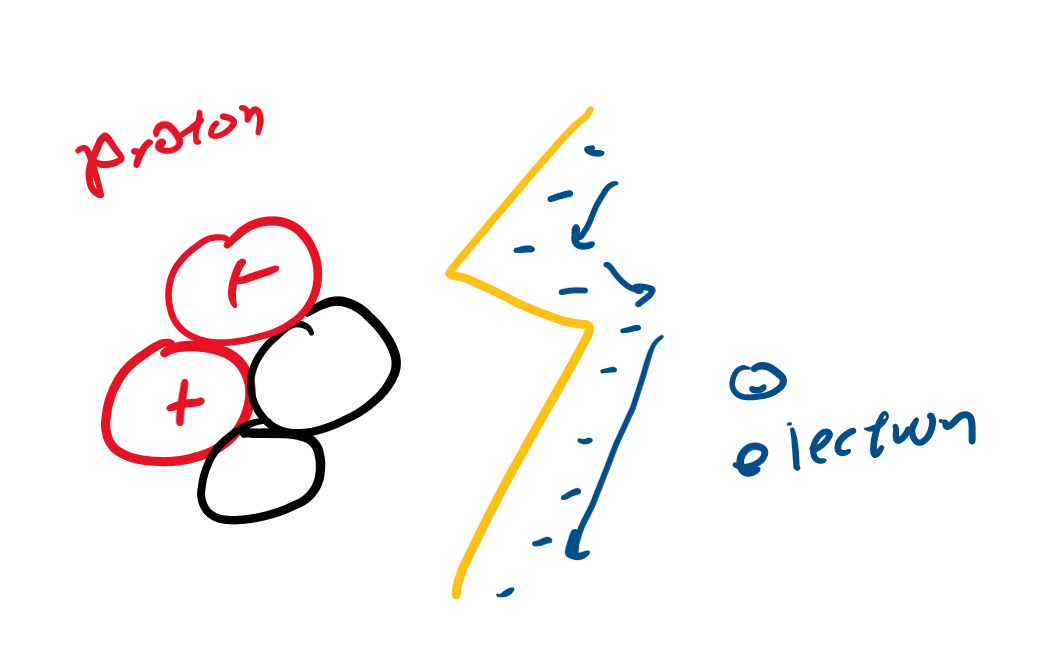 proton
+
+
electron